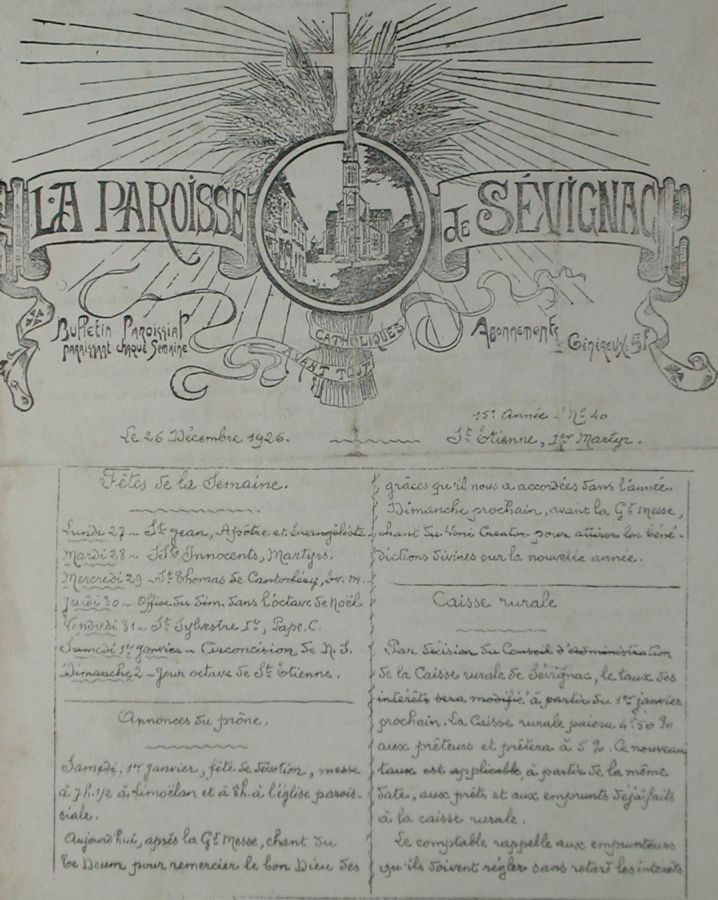 LA PAROISSE
de SÉVIGNAC
Bulletin Paroissial
paraissant chaque Semaine
CATHOLIQUES
AVANT TOUT
Abonnements
Généreux: 5F
15e Année - No 40
Le 26 Décembre 1926.
St Étienne, 1er Martyr.
Fêtes de la Semaine.
Lundi 27 ~ St Jean, Apôtre et Évangéliste.
Mardi 28 ~ SSts Innocents, Martyrs.
Mercredi 29 ~ St Thomas de Cantorbéry, Év. M.
Jeudi 30 ~ Office du Dim. dans l'octave de Noël
Vendredi 31 ~ St Sylvestre Ier, Pape. C.
Samedi 1er janvier ~ Circoncision de N. S.
Dimanche 2 ~ Jour octave de St Étienne.
Annonces du prône.
Samedi, 1er janvier, fête de dévotion, messe
à 7h. 1/2 à Limoëlan et à 8h. à l'église parois-
siale.
Aujourd'hui, après la Gd Messe, chant du
Te Deum pour remercier le bon Dieu des
grâces qu'il nous a accordées dans l'année.
Dimanche prochain, avant la Gd Messe,
chant du Veni Creator pour attirer les béné-
dictions divines sur la nouvelle année.
Caisse rurale
Par décision du Conseil d'administration
de la Caisse rurale de Sévignac, le taux des
intérêts sera modifié à partir du 1er janvier
prochain. La Caisse rurale paiera 4f.50 %
aux prêteurs et prêtera à 5 %. Ce nouveau
taux est applicable, à partir de la même
date, aux prêts et aux emprunts déjà faits
à la caisse rurale.
Le comptable rappelle aux emprunteurs
qu'ils doivent régler sans retard les intérêts